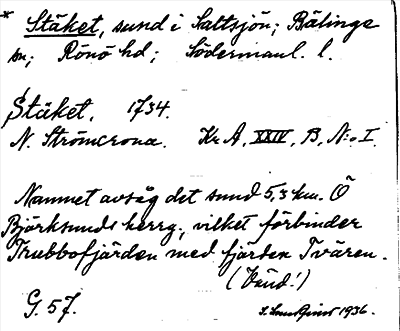 * Stäket, sund i Saltsjön; Bälinge
sn; Rönö hd; Södermanl. l.
Stäket. 1734.
N. Strömcrona. Kr. A, XXIV, B, N:o I
Namnet avsåg det sund 5,3 km. Ö
Björksunds herrg., vilket förbinder
Trubbofjärden med fjärden Tvären.
(Vänd!)
G. 57.
1936.